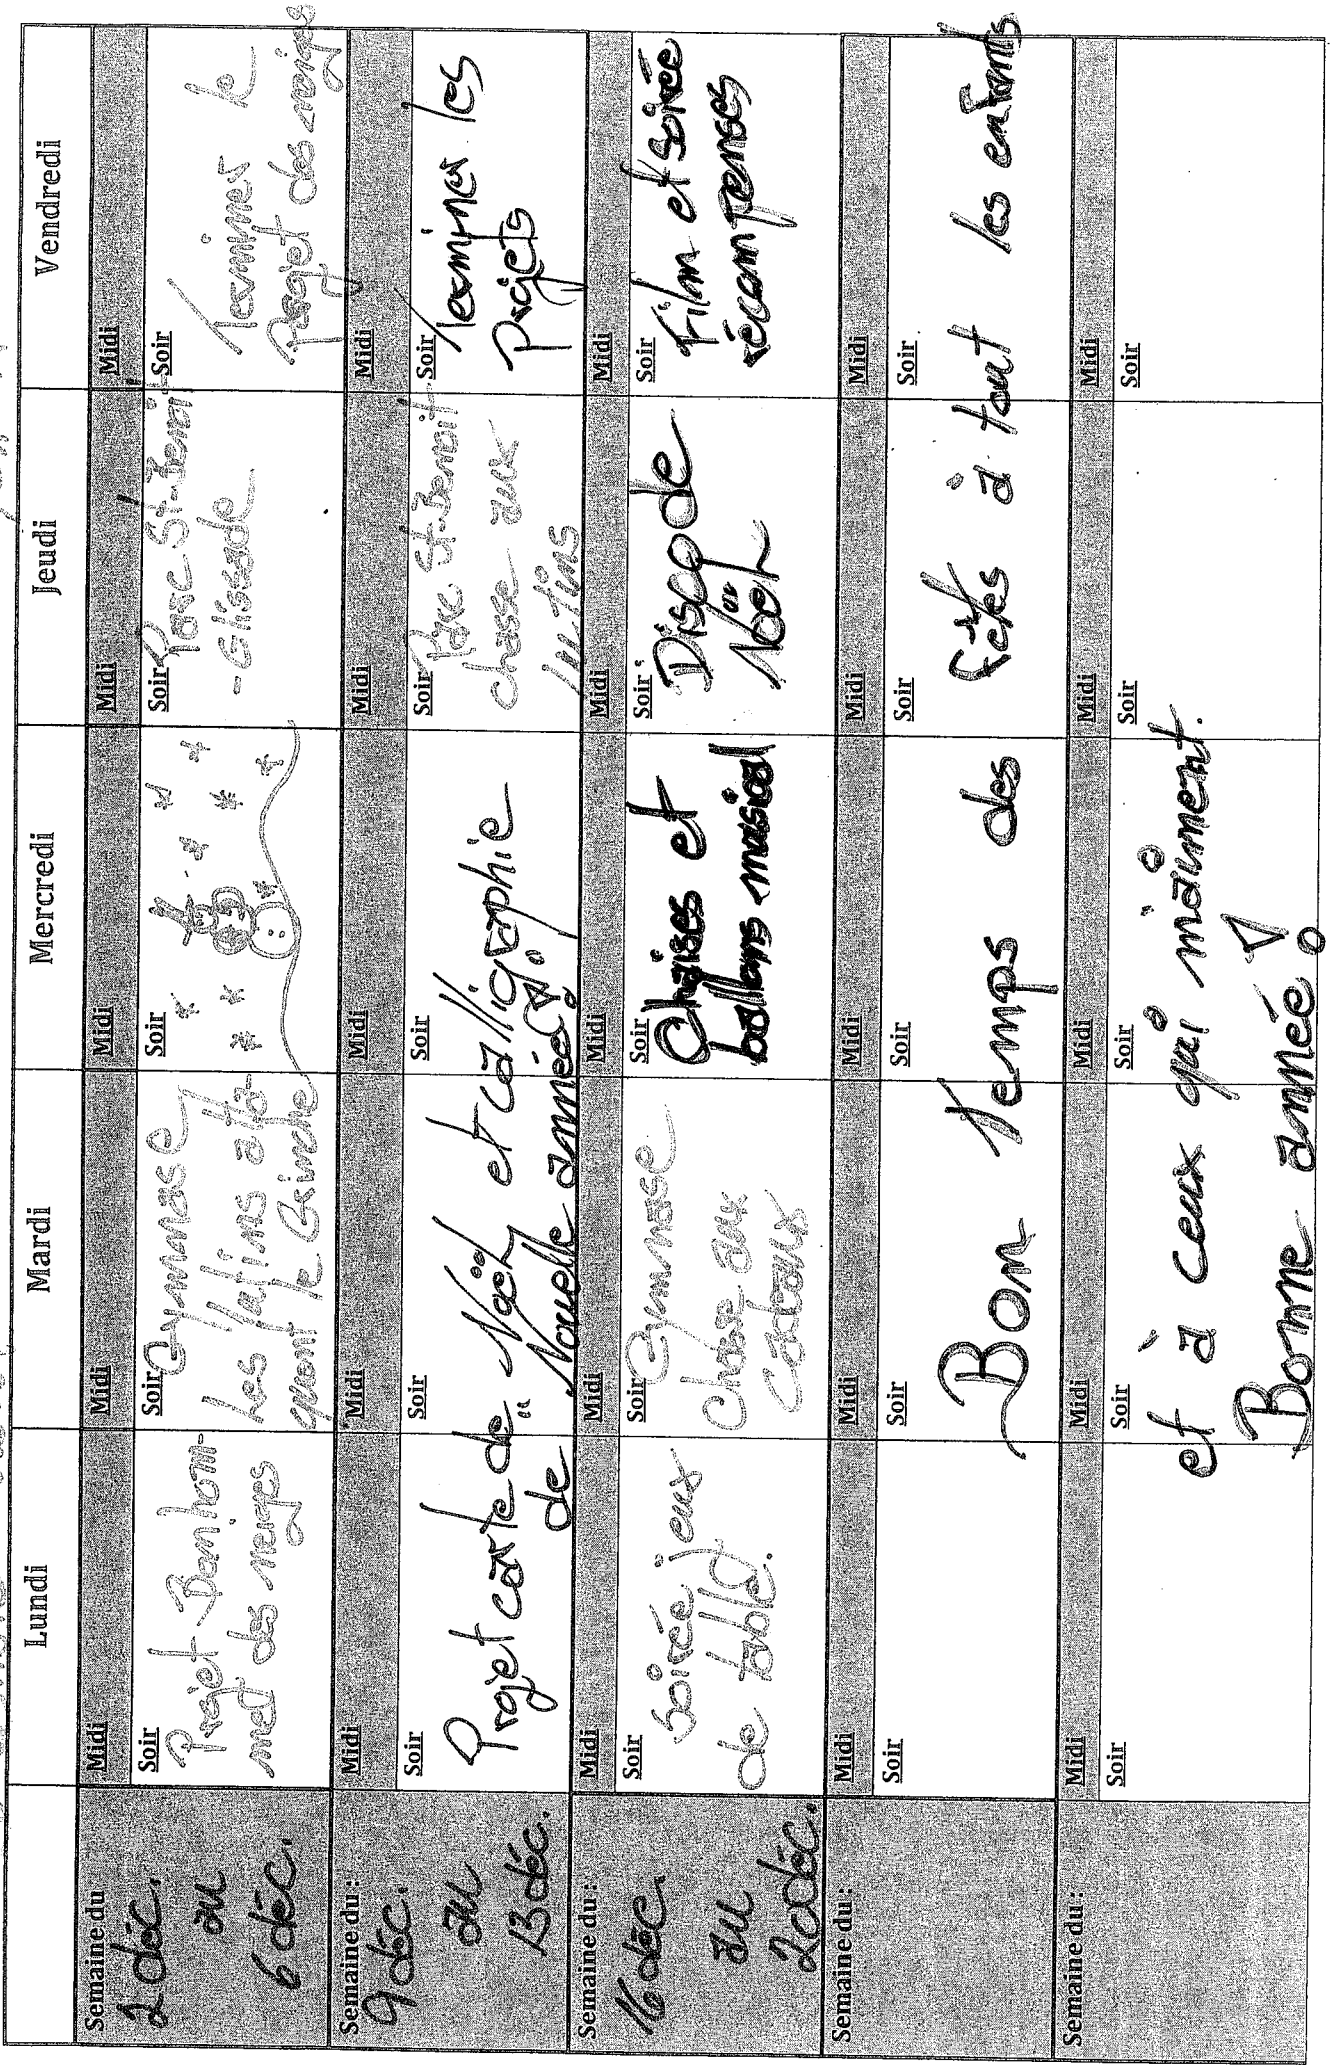 Lundi
Mardi
Mercredi
Jeudi
Vendredi
Semaine du
2 déc.
au
6 déc.
Midi
Soir
Projet Bonhom-
me des neiges
Midi
Soir
Gymnase
Les lutins atta-
quent le Grinche
Midi
Soir
Midi
Soir
Parc St-Benoit
- Glissade
Midi
Soir
Terminer le
projet des neiges
Semaine du :
9 déc.
au
13 déc.
Midi
Soir
Midi
Soir
Midi
Soir
Projet carte de Noël et calligraphie
de Nouvelle année!
Midi
Soir
Parc St-Benoit
chasse aux
lutins
Midi
Soir
Terminer les
projets
Semaine du :
16 déc.
au
20 déc.
Midi
Soir
Soirée jeux
de table.
Midi
Soir
Gymnase
Chasse aux
cadeaux
Midi
Soir
Chaises et
ballons musical
Midi
Soir
Disco de
Noël
Midi
Soir
Film et soirée
récompenses
Semaine du :
Midi
Soir
Midi
Soir
Midi
Soir
Midi
Soir
Midi
Soir
Bon temps des fêtes à tout les enfants
Semaine du :
Midi
Soir
Midi
Soir
Midi
Soir
Midi
Soir
Midi
Soir
et à ceux qui m'aiment.
Bonne année!